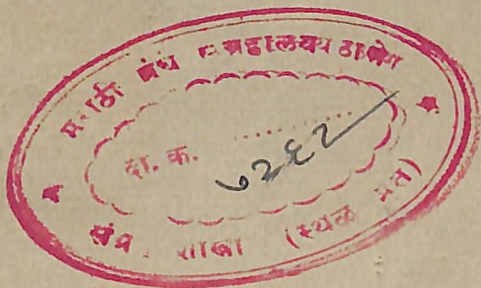 मराठी ग्रंथ संग्रहालय ठाणे
दा. क. ७२६२
शाखा (स्थळ प्रत)